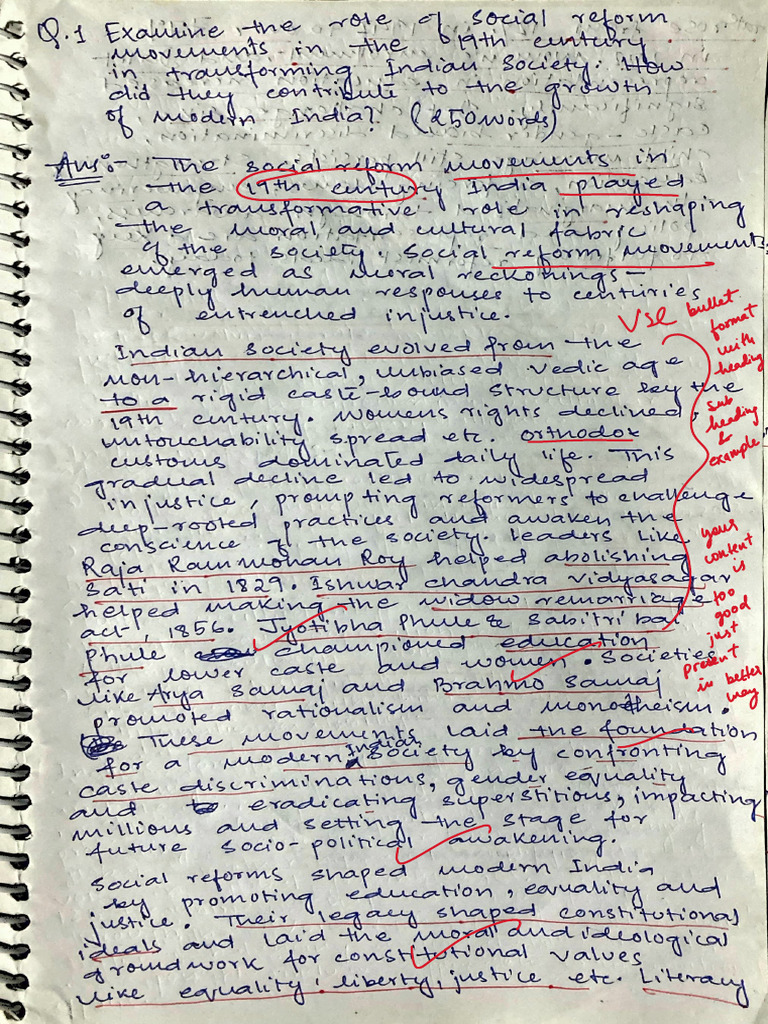 Q.1 Examine the role of social reform
movements in the 19th century
in transforming Indian Society. How
did they contribute to the growth
of modern India? (250 words)
Ans:- The social reform movements in
the 19th century India played
a transformative role in reshaping
the moral and cultural fabric
of the society. Social reform movements
emerged as moral reckonings -
deeply human responses to centuries
of entrenched injustice.
Indian Society evolved from the
non-hierarchical, unbiased vedic age
to a rigid caste-bound structure by the
19th century. Womens rights declined,
untouchability spread etc. orthodox
customs dominated daily life. This
gradual decline led to widespread
injustice, prompting reformers to challenge
deep-rooted practices and awaken the
conscience of the society. Leaders like
Raja Rammohan Roy helped abolishing
Sati in 1829. Ishwar chandra vidyasagar
helped making the widow remarriage
act, 1856. Jyotibha Phule & Sabitri bai
Phule championed education
for lower caste and women. Societies
like Arya Samaj and Brahmo Samaj
promoted rationalism and monotheism.
These movements laid the foundation
for a modern Indian Society by confronting
caste discriminations, gender equality
and eradicating superstitious, impacting
millions and setting the stage for
future socio-political awakening.
Social reforms shaped modern India
by promoting education, equality and
justice. Their legacy shaped constitutional
ideals and laid the moral and ideological
groundwork for constitutional values
like equality, liberty, justice etc. Literacy
Use bullet
format
with
heading
sub
heading
&
example
your
content
is
too
good
just
present
in better
way